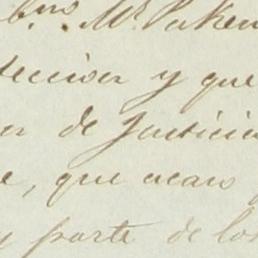 bres. Mr. Paken
decision y que
or de Justicia
e, que acaso
y parte de los